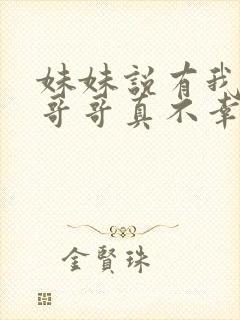 妹妹説有我
哥哥真不幸
金賢珠